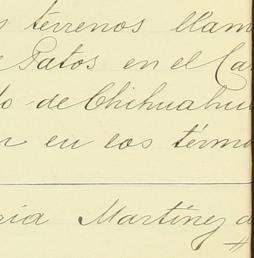 s terrenos llam
e Patos en el Ca
do de Chihuahu
n en los térm
ría Martínez d